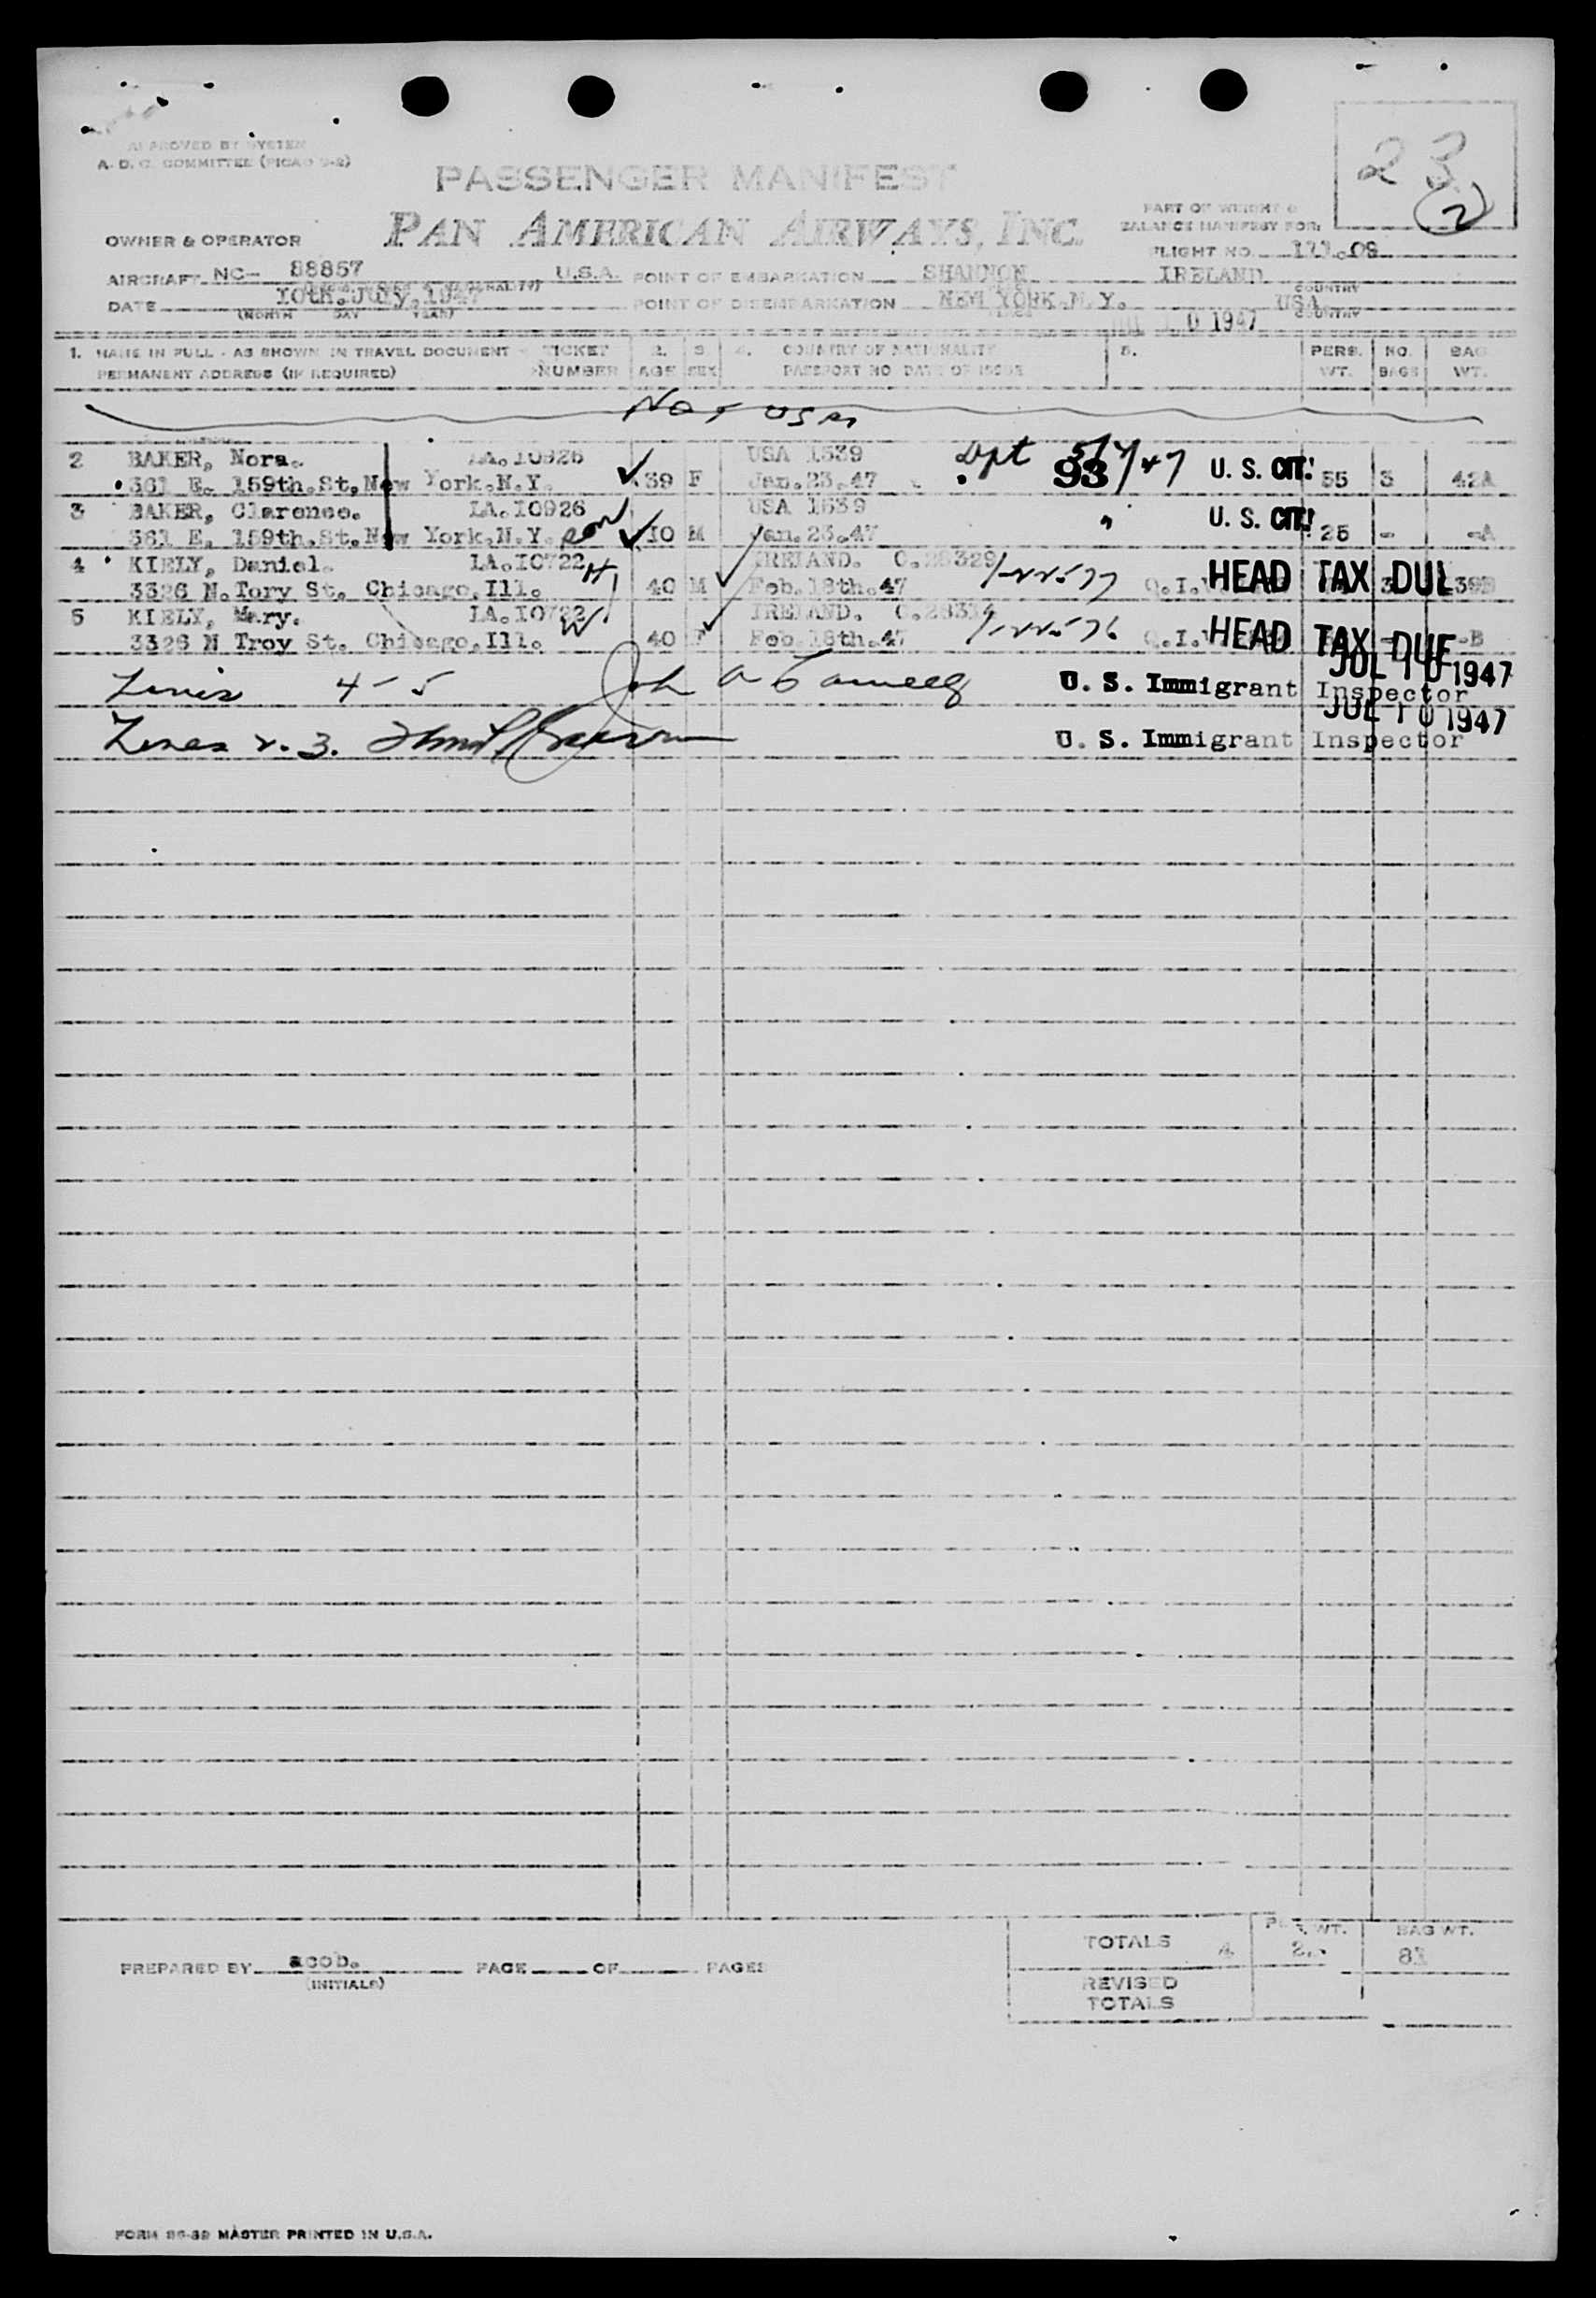 APPROVED BY SYSTEM
A. D. C. COMMITTEE (PICAO 9-2)
23
2
PASSENGER MANIFEST
PAN AMERICAN AIRWAYS, INC.
PART OF WEIGHT &
BALANCE MANIFEST FOR:
OWNER & OPERATOR
FLIGHT NO. 
AIRCRAFT NC- 88857 U.S.A. POINT OF EMBARKATION SHANNON IRELAND
COUNTRY
DATE 10th.July.1947 POINT OF DISEMBARKATION NEW YORK.N.Y. USA
(MONTH DAY YEAR) COUNTRY
0 1947
1. NAME IN FULL - AS SHOWN IN TRAVEL DOCUMENT - TICKET 2. 3. 4. COUNTRY OF NATIONALITY 5. PERS. NO. BAG
PERMANENT ADDRESS (IF REQUIRED) NUMBER AGE SEX PASSPORT NO DATE OF ISSUE WT. BAGS WT.
Not used
2 BAKER, Nora. LA.10926 USA 1539 Dpt
361 E. 159th.St,New York.N.Y. 39 F Jan.23.47 93 /47 U. S. CIT. 55 3 42A
3 BAKER, Clarence. LA.10926 USA 1539
361 E. 159th.St,New York.N.Y. son 10 M Jan.23.47 " U. S. CIT. 25 - -A
4 KIELY, Daniel. LA.10722 H IRELAND. C.28329
3326 N.Tory St. Chicago.Ill. 40 M Feb.18th.47 Q.I. HEAD TAX DUE 39B
5 KIELY, Mary. LA.10722 W IRELAND.
3326 N Troy St. Chicago.Ill. 40 F Feb.18th.47 Q.I. HEAD TAX DUE -B
JUL 10 1947
4 - 5 John U. S. Immigrant Inspector
JUL 10 1947
Lines 2. 3. U. S. Immigrant Inspector
TOTALS 4 PERS. WT. BAG WT.
PREPARED BY acob. PAGE OF PAGES
(INITIALS)
REVISED
TOTALS
FORM MASTER PRINTED IN U.S.A.